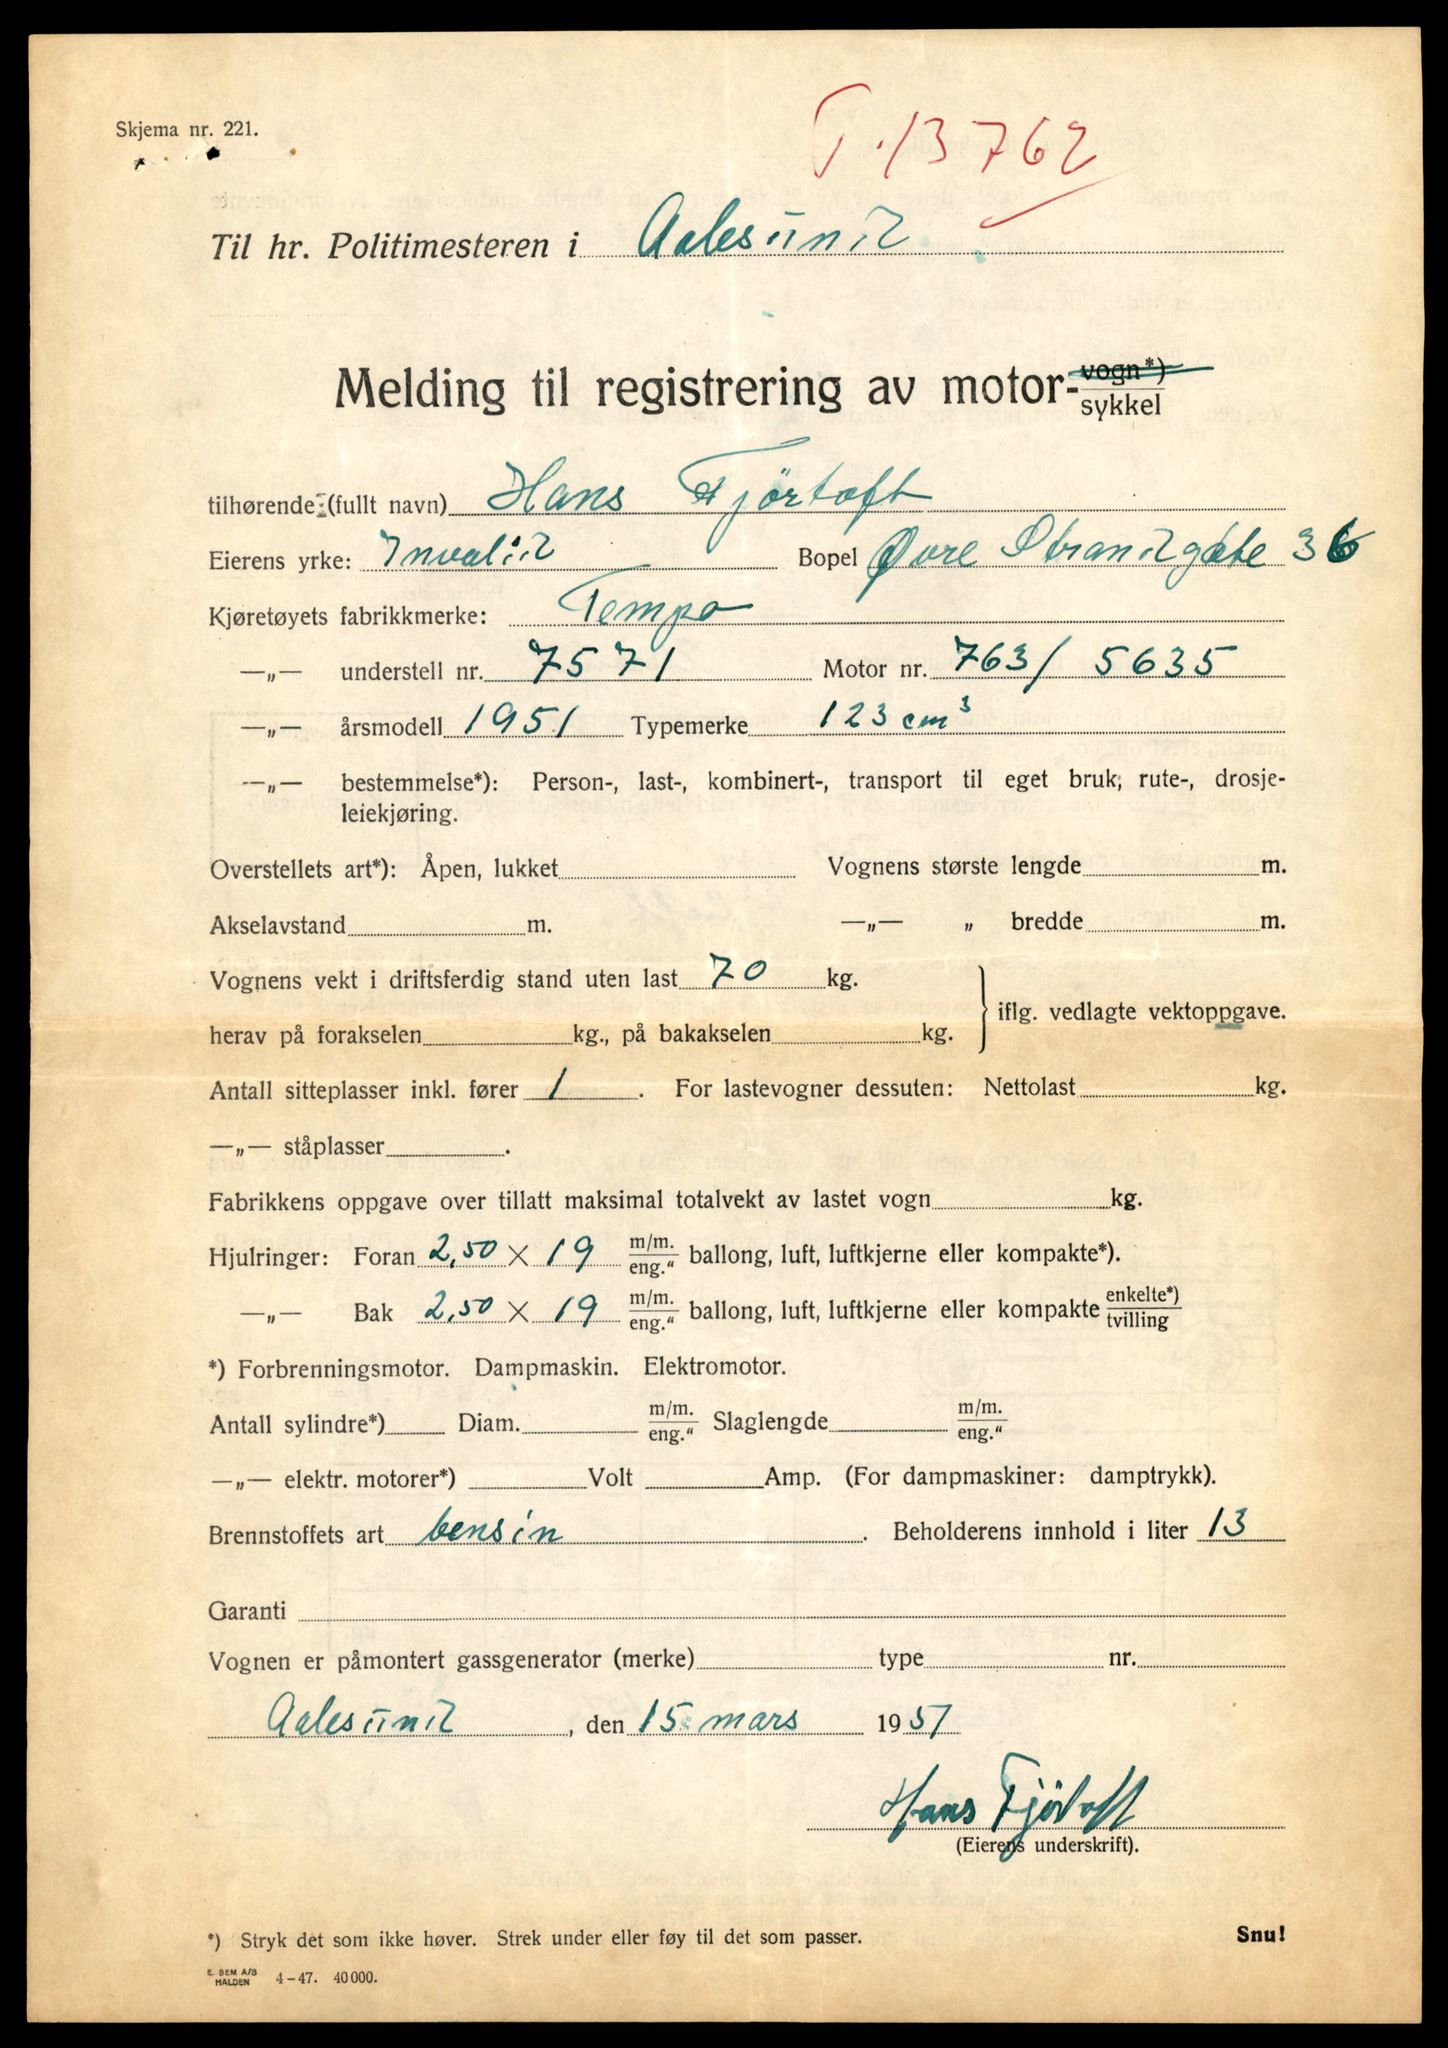 Skjema nr. 221.
T.13762
Til hr. Politimesteren i Aalesund
Melding til registrering av motor-vogn*) sykkel
tilhørende (fullt navn) Hans Fjörtoft
Eierens yrke: Invalid Bopel Øvre Strandgate 36
Kjøretøyets fabrikkmerke: Tempo
—„— understell nr. 7571 Motor nr. 763/ 5635
—„— årsmodell 1951 Typemerke 123 cm³
—„— bestemmelse*): Person-, last-, kombinert-, transport til eget bruk, rute-, drosje-
leiekjøring.
Overstellets art*): Åpen, lukket Vognens største lengde m.
Akselavstand m. —„— „ bredde m.
Vognens vekt i driftsferdig stand uten last 70 kg.
herav på forakselen kg., på bakakselen kg. iflg. vedlagte vektoppgave.
Antall sitteplasser inkl. fører 1. For lastevogner dessuten: Nettolast kg.
—„— ståplasser .
Fabrikkens oppgave over tillatt maksimal totalvekt av lastet vogn kg.
Hjulringer: Foran 2,50 × 19 m/m. eng.“ ballong, luft, luftkjerne eller kompakte*).
—„— Bak 2,50 × 19 m/m. eng.“ ballong, luft, luftkjerne eller kompakte enkelte*) tvilling
*) Forbrenningsmotor. Dampmaskin. Elektromotor.
Antall sylindre*) Diam. m/m. eng.“ Slaglengde m/m. eng.“
—„— elektr. motorer*) Volt Amp. (For dampmaskiner: damptrykk).
Brennstoffets art bensin. Beholderens innhold i liter 13
Garanti
Vognen er påmontert gassgenerator (merke) type nr.
Aalesund, den 15. mars 1957
Hans Fjörtoft
(Eierens underskrift).
*) Stryk det som ikke høver. Strek under eller føy til det som passer. Snu!
E. SEM A/S HALDEN 4-47. 40 000.